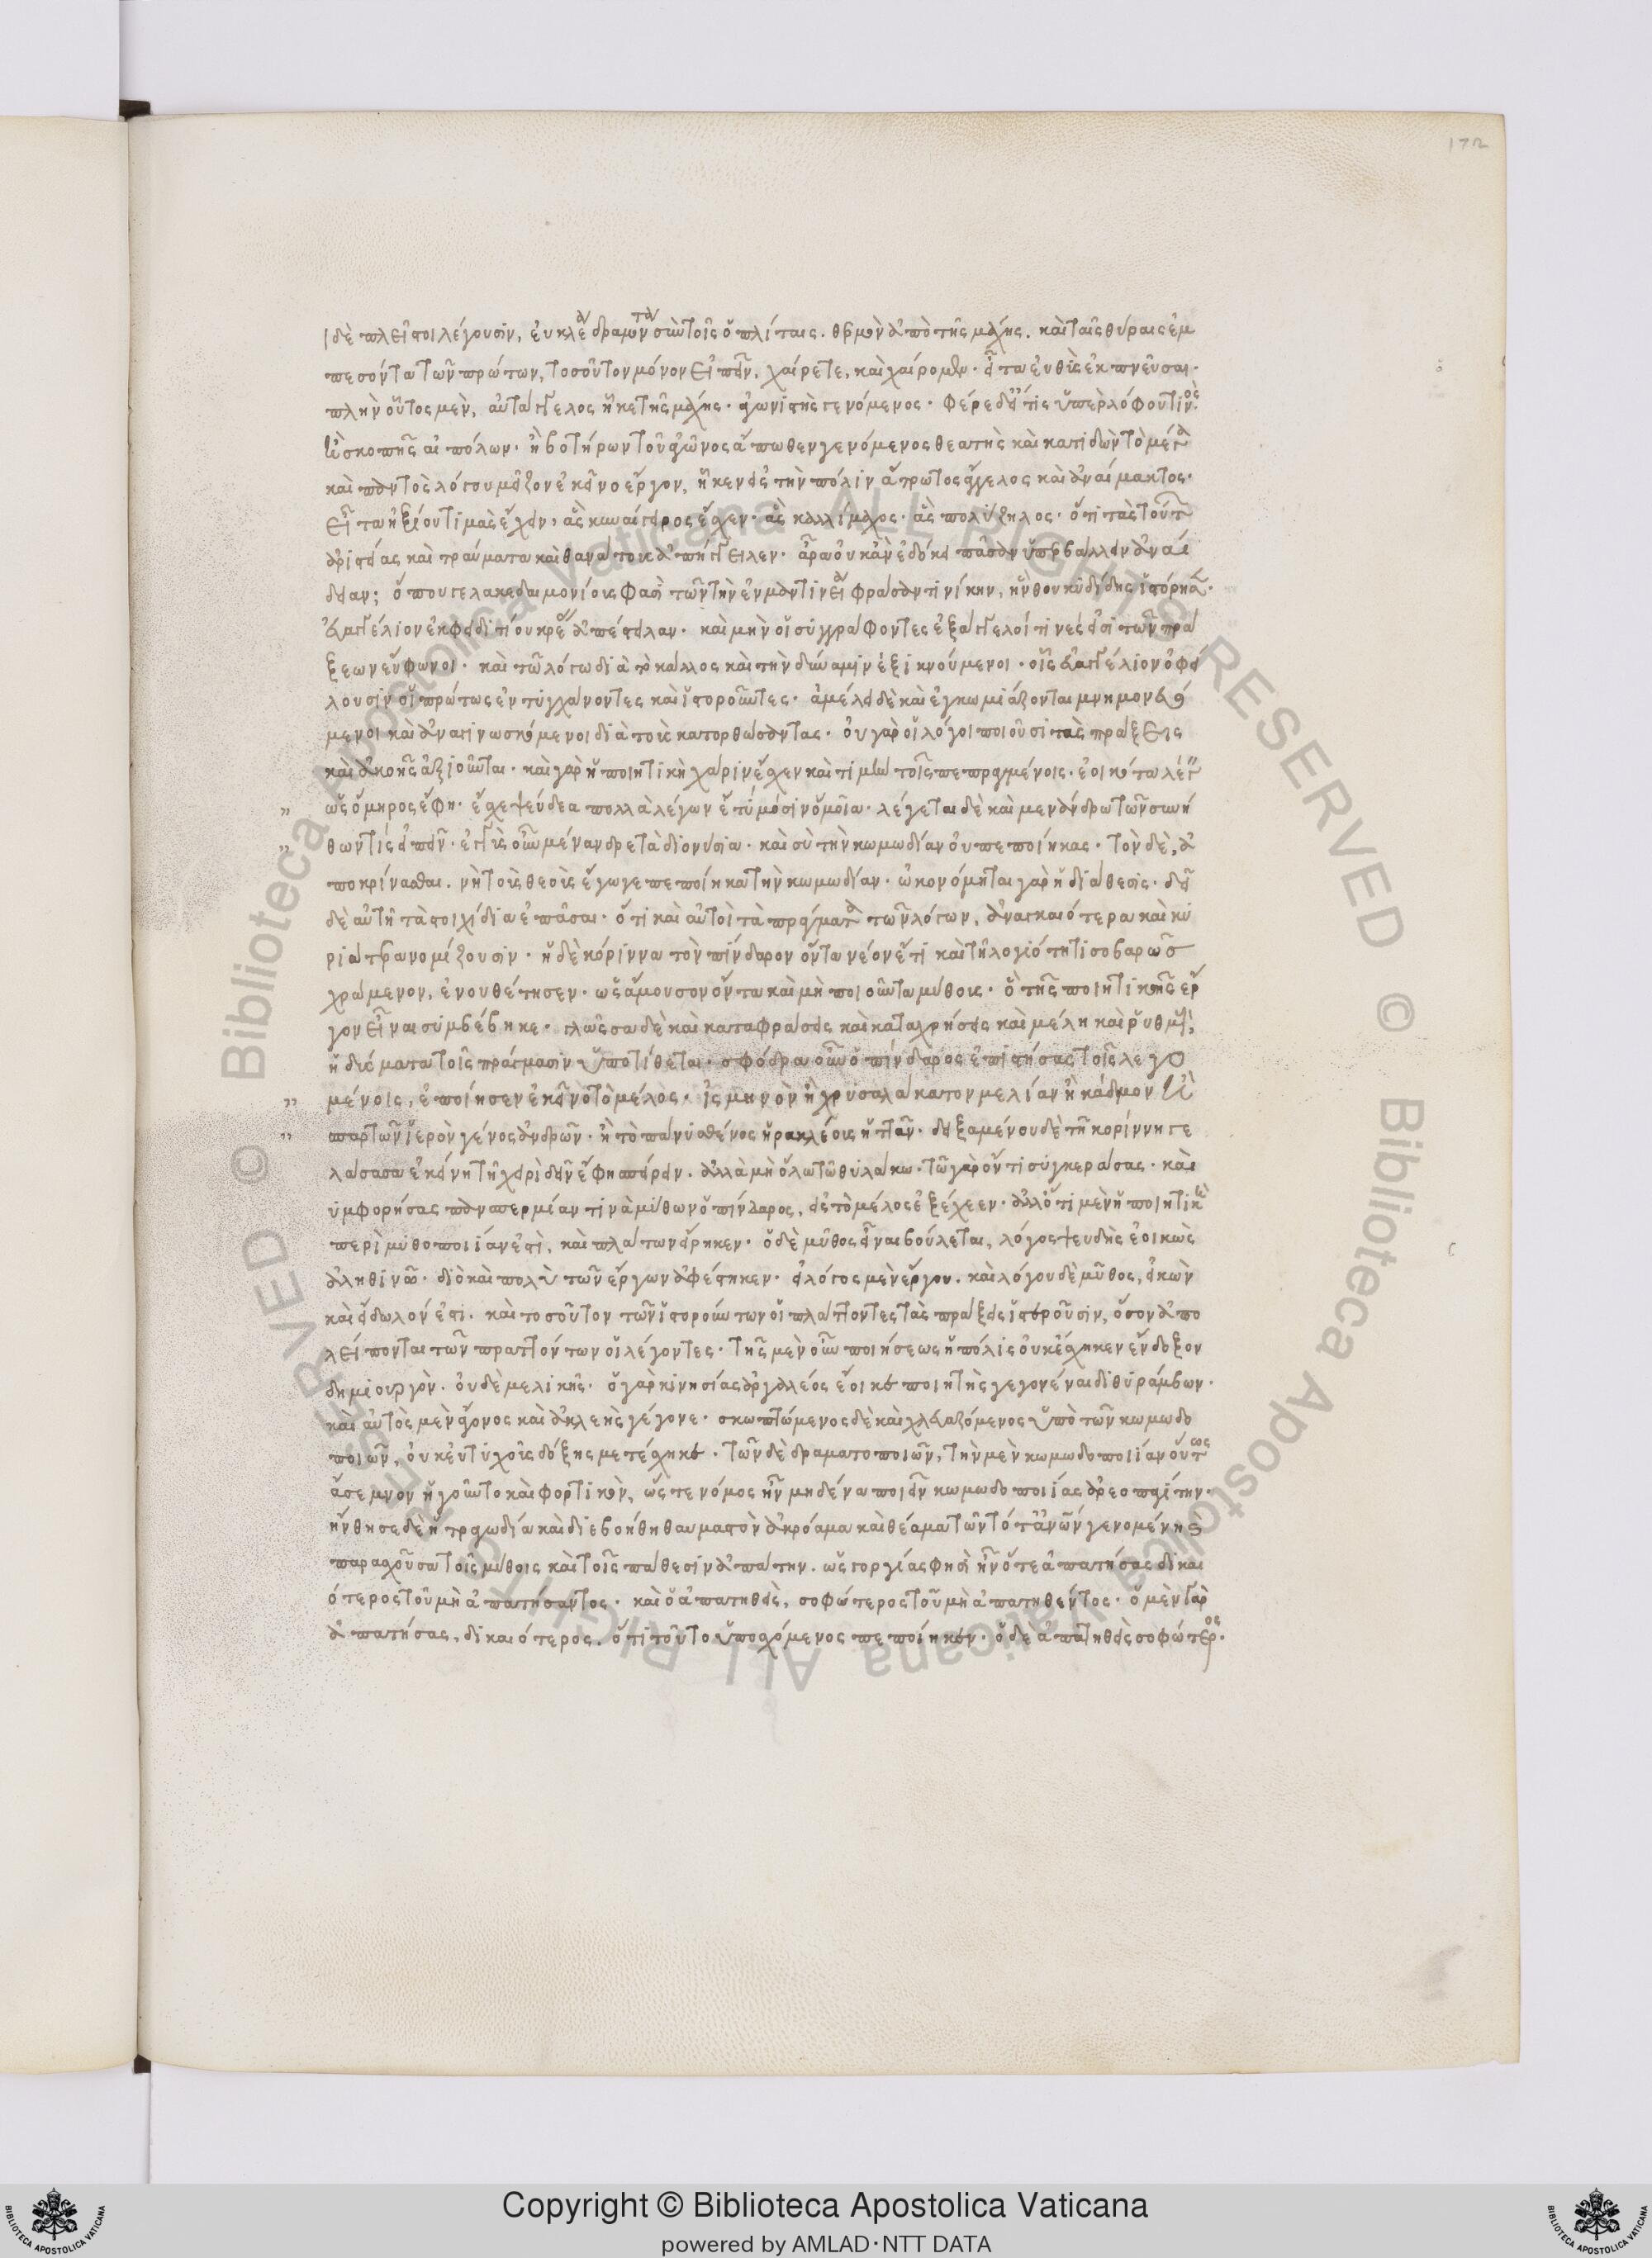 172
οἱ δὲ πλεῖστοι λέγουσιν, εὐκλέα δραμόντα σὺν τοῖς ὅπλοις. θερμὸν ἀπὸ τῆς μάχης. καὶ ταῖς θύραις ἐμ
πεσόντα τῶν πρώτων, τοσοῦτον μόνον εἰπεῖν, χαίρετε, καὶ χαίρομεν. εἶτα εὐθὺς ἐκπνεῦσαι.
πλὴν οὗτος μὲν, αὐτάγγελος ἧκε τῆς μάχης. ἀγωνιστὴς γενόμενος. φέρε δ' εἴ τις ὑπὲρ λόφου τινὸς
ἢ σκοπῆς αἰπόλων. ἢ βοτήρων τοῦ ἀγῶνος ἄπωθεν γενόμενος θεατὴς καὶ κατιδὼν τὸ μέγα
καὶ παντὸς λόγου μεῖζον ἐκεῖνο ἔργον, ἧκεν εἰς τὴν πόλιν ἄτρωτος ἄγγελος καὶ ἀναίμακτος.
εἶτα ἠξίου τιμὰς ἔχειν, ἃς κυναίγειρος ἔσχεν. ἃς καλλίμαχος. ἃς πολύζηλος. ὅτι τὰς τούτων
ἀριστείας καὶ τραύματα καὶ θανάτους ἀπήγγειλεν. ἆρα οὐκ ἂν ἐδόκει πᾶσαν ὑπερβάλλειν ἀναί
δειαν; ὅπου γε λακεδαιμονίους φασὶ τῶν τὴν ἐν μαντινείᾳ φράσαντι νίκην, ἣν θουκυδίδης ἱστόρηκεν.
εὐαγγέλιον ἐκ φειδιτίου κρέας ἀπέστειλαν. καὶ μὴν οἱ συγγράφοντες ἐξάγγελοί τινές εἰσι τῶν πρά
ξεων εὔφωνοι. καὶ τῷ λόγῳ διὰ τὸ κάλλος καὶ τὴν δύναμιν ἐξικνούμενοι. οἷς εὐαγγέλιον ὀφεί
λουσιν οἱ πρώτως ἐντυγχάνοντες καὶ ἱστοροῦντες. ἀμέλει δὲ καὶ ἐγκωμιάζονται μνημονευό
μενοι καὶ ἀναγινωσκόμενοι διὰ τοὺς κατορθώσαντας. οὐ γὰρ οἱ λόγοι ποιοῦσι τὰς πράξεις
καὶ ἀκοῆς ἀξιοῦνται. καὶ γὰρ ἡ ποιητικὴ χάριν ἔσχεν καὶ τιμὴν τοῖς πεπραγμένοις. ἐοικότα λέγειν
ὡς ὅμηρος ἔφη. ἔσχε ψεύδεα πολλὰ λέγων ἐτύμοισιν ὅμοια. λέγεται δὲ καὶ μενάνδρῳ τῶν συνή
θων τίς εἰπεῖν. ἐγγὺς οὖν μένανδρε τὰ διονύσια. καὶ σὺ τὴν κωμῳδίαν οὐ πεποίηκας. τὸν δὲ, ἀ
ποκρίνασθαι. νὴ τοὺς θεοὺς ἔγωγε πεποίηκα τὴν κωμῳδίαν. ᾠκονόμηται γὰρ ἡ διάθεσις. δεῖ
δὲ αὐτῇ τὰ στιχίδια ἐπᾶσαι. ὅτι καὶ αὐτοὶ τὰ πράγματα τῶν λόγων, ἀναγκαιότερα καὶ κυ
ριώτερα νομίζουσιν. ἡ δὲ κόριννα τὸν πίνδαρον ὄντα νέον ἔτι καὶ τῇ λογιότητι σοβαρῶς
χρώμενον, ἐνουθέτησεν. ὡς ἄμουσον ὄντα καὶ μὴ ποιοῦντα μύθους. ὃ τῆς ποιητικῆς ἔρ
γον εἶναι συμβέβηκε. γλώσσα δὲ καὶ καταφράσεις καὶ καταχρήσεις καὶ μέλη καὶ ῥυθμοὶ,
ἡδύσματα τοῖς πράγμασιν ὑποτίθεται. σφόδρα οὖν ὁ πίνδαρος ἐπιστήσας τοῖς λεγο
μένοις, ἐποίησεν ἐκεῖνο τὸ μέλος. ἰσμηνὸν ἢ χρυσαλάκατον μελίαν ἢ κάδμον ἢ
σπαρτῶν ἱερὸν γένος ἀνδρῶν. ἢ τὸ πάνυ σθένος ἡρακλέους ἢ τὰν. δειξαμένου δὲ τῇ κορίννῃ γε
λάσασα ἐκείνη τῇ χειρὶ δεῖν ἔφη σπείρειν. ἀλλὰ μὴ ὅλῳ τῷ θυλάκῳ. τῷ γὰρ ὄντι συγκεράσας. καὶ
συμφορήσας πανσπερμίαν τινὰ μύθων ὁ πίνδαρος, εἰς τὸ μέλος ἐξέχεεν. ἀλλ' ὅτι μὲν ἡ ποιητικὴ
περὶ μυθοποιίαν ἐστὶ, καὶ πλάτων εἴρηκεν. ὁ δὲ μῦθος εἶναι βούλεται, λόγος ψευδὴς ἐοικὼς
ἀληθινῷ. διὸ καὶ πολὺ τῶν ἔργων ἀφέστηκεν. εἰ λόγος μὲν ἔργου. καὶ λόγου δὲ μῦθος, εἰκὼν
καὶ εἴδωλόν ἐστι. καὶ τοσοῦτον τῶν ἱστορούντων οἱ πλάττοντες τὰς πράξεις ὑστεροῦσιν, ὅσον ἀπο
λείπονται τῶν πραττόντων οἱ λέγοντες. τῆς μὲν οὖν ποιήσεως ἡ πόλις οὐκ ἔσχηκεν ἔνδοξον
δημιουργὸν. οὐδὲ μελικῆς. ὁ γὰρ κινησίας ἀργαλέος ἔοικε ποιητὴς γεγονέναι διθυράμβων.
καὶ αὐτὸς μὲν ἄγονος καὶ ἀκλεὴς γέγονε. σκωπτόμενος δὲ καὶ χλευαζόμενος ὑπὸ τῶν κωμῳδο
ποιῶν, οὐκ εὐτυχοῦς δόξης μετέσχηκε. τῶν δὲ δραματοποιῶν, τὴν μὲν κωμῳδοποιίαν οὕτως
ἄσεμνον ἡγοῦντο καὶ φορτικὸν, ὥστε νόμος ἦν μηδένα ποιεῖν κωμῳδοποιίας ἀρεοπαγίτην.
ἤνθησε δὲ ἡ τραγῳδία καὶ διεβοήθη θαυμαστὸν ἀκρόαμα καὶ θέαμα τῶν τότ' ἀνθρώπων γενομένη καὶ
παρασχοῦσα τοῖς μύθοις καὶ τοῖς πάθεσιν ἀπάτην. ὡς γοργίας φησὶ ἣν ὅτε ἀπατήσας δικαι
ότερος τοῦ μὴ ἀπατήσαντος. καὶ ὁ ἀπατηθεὶς, σοφώτερος τοῦ μὴ ἀπατηθέντος. ὁ μὲν γὰρ
ἀπατήσας, δικαιότερος. ὅτι τοῦτο ὑποσχόμενος πεποίηκεν. ὁ δὲ ἀπατηθεὶς σοφώτερος.
Copyright © Biblioteca Apostolica Vaticana
powered by AMLAD·NTT DATA